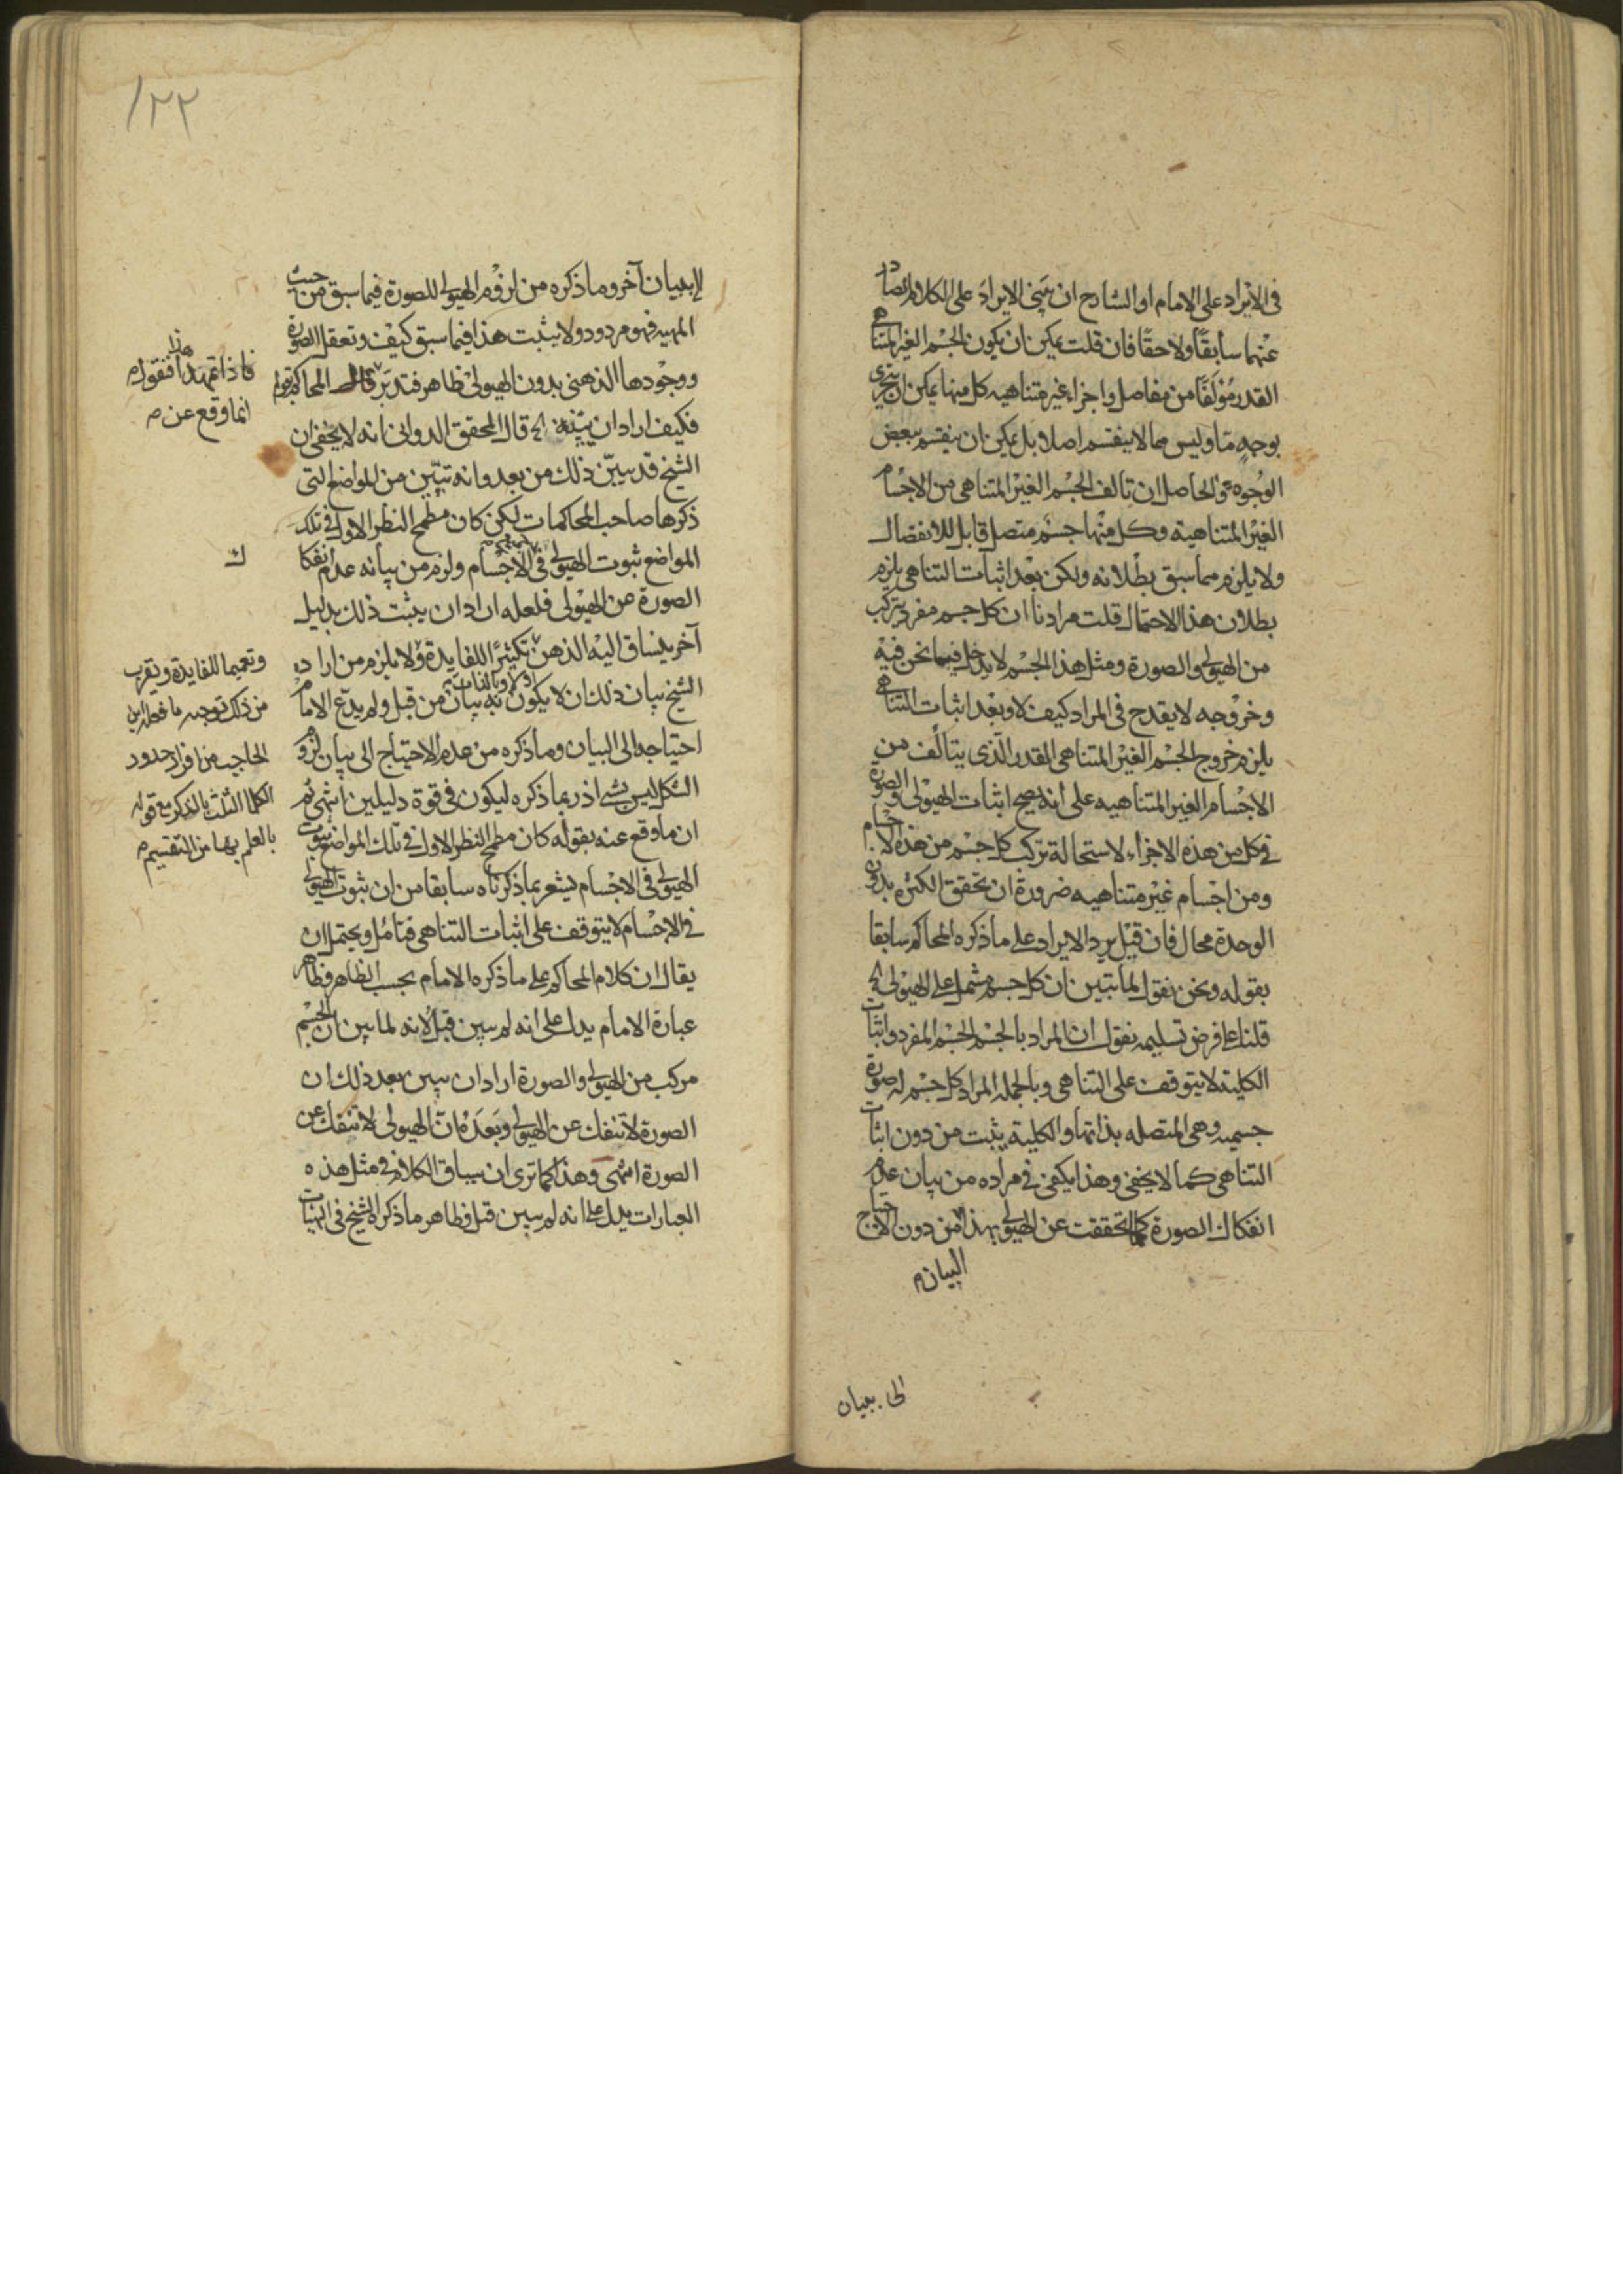 فى الايراد على الامام او الشارح ان يبنى الايراد على الكلام الصادر
عنهما سابقًا ولاحقًا فان قلت يمكن ان يكون الجسم الغير المتناهى
القدر مؤلفًا من مفاصل واجزاء غير متناهيه كل منها يمكن ان يتجزى
بوجهٍ مّا وليس مما لا ينقسم اصلا بل يمكن ان ينقسم ببعض
الوجوه والحاصل ان تالف الجسم الغير المتناهى من الاجسام
الغير المتناهية وكل منها جسم متصل قابل للانفصال
ولا يلزم مما سبق بطلانه ولكن بعد اثبات التناهى يلزم
بطلان هذا الاحتمال قلت مرادنا ان كل جسم مفرد يتركب
من الهيولى والصورة ومثل هذا الجسم لا يدخل فيما نحن فيه
وخروجه لا يقدح فى المراد كيف لا وبعد اثبات التناهى
يلزم خروج الجسم الغير المتناهى القدر الذى يتالف من
الاجسام الغير المتناهيه على انه يصح اثبات الهيولى والصورة
فى كل من هذه الاجزاء لاستحالة تركب كل جسم من هذه الاجسام
ومن اجسام غير متناهيه ضرورة ان تحقق الكثره بدون
الوحدة محال فان قيل يرد الايراد على ما ذكره المحاكم سابقا
بقوله ونحن نقول لما تبين ان كل جسم مشتمل على الهيولى الخ
قلنا على فرض تسليمه نقول ان المراد بالجسم الجسم المفرد واثبات
الكلية لا يتوقف على التناهى وبالجمله المراد كل جسم له صورة
جسميه وهى المتصله بذاتها والكلية يثبت من دون اثبات
التناهى كما لا يخفى وهذا يكفى فى مراده من بيان عدم
انفكاك الصورة كما تحققت عن الهيولى بهذا من دون الاحتياج
البيان
الى بيان
١٢٢
لا ببيان آخر وما ذكره من لزوم الهيولى للصورة فيما سبق من حيث
المهيه فهو مردود ولا يثبت هذا فيما سبق كيف وتعقل الصورة
ووجودها الذهنى بدون الهيولى ظاهر فتدبر قال المحاكم قوله
فكيف اراد ان يبينه الخ قال المحقق الدوانى انه لا يخفى ان
الشيخ قد بيّن ذلك من بعد وانه تبيّن من المواضع التى
ذكرها صاحب المحاكمات لكن كان مطمح النظر الاول فى تلك
المواضع ثبوت الهيولى فى الاجسام ولزم من بيانه عدم انفكا
ك
الصورة عن الهيولى فلعله اراد ان يثبت ذلك بدليل
آخر ينساق اليه الذهن تكثيرًا للفايدة ولا يلزم من ارادة
اولا وبالذات
الشيخ بيان ذلك ان لا يكون به بيان من قبل ولم يدّع الامام
احتياجه الى البيان وما ذكره من عدم الاحتياج الى بيان لزوم
الشكل ليس بشى اذ ربما ذكره ليكون فى قوة دليلين انتهى ثم
ان ما وقع عنه بقوله كان مطمح النظر الاول فى تلك المواضع ثبوت
الهيولى فى الاجسام يشعر بما ذكرناه سابقا من ان ثبوت الهيولى
فى الاجسام لا يتوقف على اثبات التناهى فتامل ويحتمل ان
يقال ان كلام المحاكم على ما ذكره الامام بحسب الظاهر وظاهر
عبارة الامام يدل على انه لم يبين قبل لانه لما بين ان الجسم
مركب من الهيولى والصورة اراد ان يبين بعد ذلك ان
الصورة لا تنفك عن الهيولى وبعده ان الهيولى لا تنفك عن
الصورة انتهى وهذا كما ترى ان سياق الكلام فى مثل هذه
العبارات يدل على انه لم يبين قبل وظاهر ما ذكره الشيخ فى الهيات
فاذا تمهد هذا فنقول
انما وقع عن
وتعميما للفايدة ويقرب
من ذلك توجيه ما فعله ابن
الحاجب من افراز حدود
الكلمات الثلث بالذكر مع قوله
بالعلم بها من التقسيم